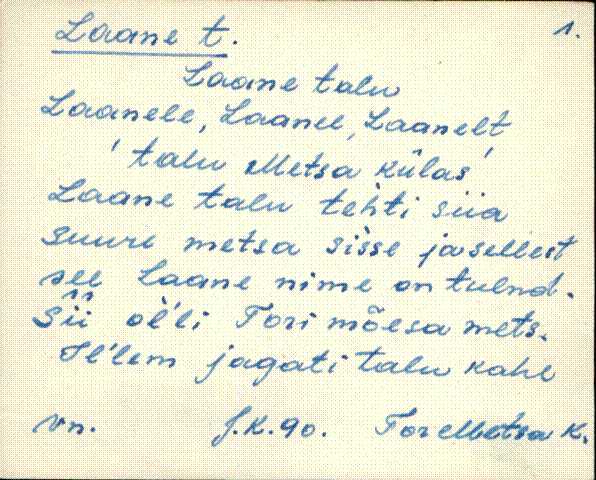 Laane t.
1.
Laane talu
Laanele, Laanel, Laanelt
'talu Metsa külas'
Laane talu tehti siia
suure metsa sisse ja sellest
see Laane nime on tulnd.
Sii ol'li Tori mõesa mets.
Il'lem jagati talu kahe
vn. J.K.90. Tor Metsa k.